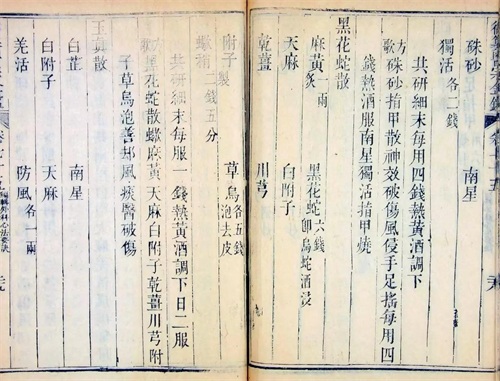 硃砂　南星
獨活 各二錢
共研細末每用四錢熱黃酒調下
方歌 硃砂指甲散神效破傷風侵手足搐每用四
錢熱酒服南星獨活指甲燒
黑花蛇散
麻黃 炙一兩　黑花蛇 六錢 即烏蛇酒浸
天麻　白附子
乾薑　川芎
附子 製　草烏 各五錢 泡去皮
蠍梢 二錢五分
共研細末每服一錢熱黃酒調下日二服
方歌 黑花蛇散蠍麻黃天麻白附子乾薑川芎附
子草烏泡善却風痰醫破傷
玉真散
白芷　南星
白附子　天麻
羌活　防風 各一兩
編輯外科心法要訣